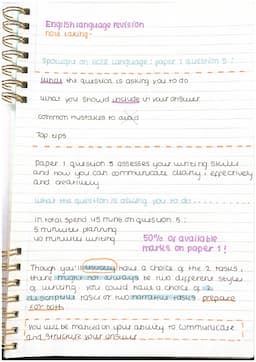 English language revision
note taking -
Spotlight on GCSE Language: paper 1 question 5:
What the question is asking you to do
What you should include in your answer
common mistakes to avoid
Top tips
Paper 1 question 5 assesses your writing skills
and how you can communicate clearly, effectively
and creatively
What the question is asking you to do.....
In total spend 45 mins on question 5:
5 minutes planning
40 minutes writing
50% of available
marks on paper 1!
Though you'll usually have a choice of the 2 tasks,
there might not always be two different styles
of writing. You could have a choice of 2
descriptive tasks or two narrative tasks. prepare
for both
You will be marked on your ability to communicate
and structure your answer